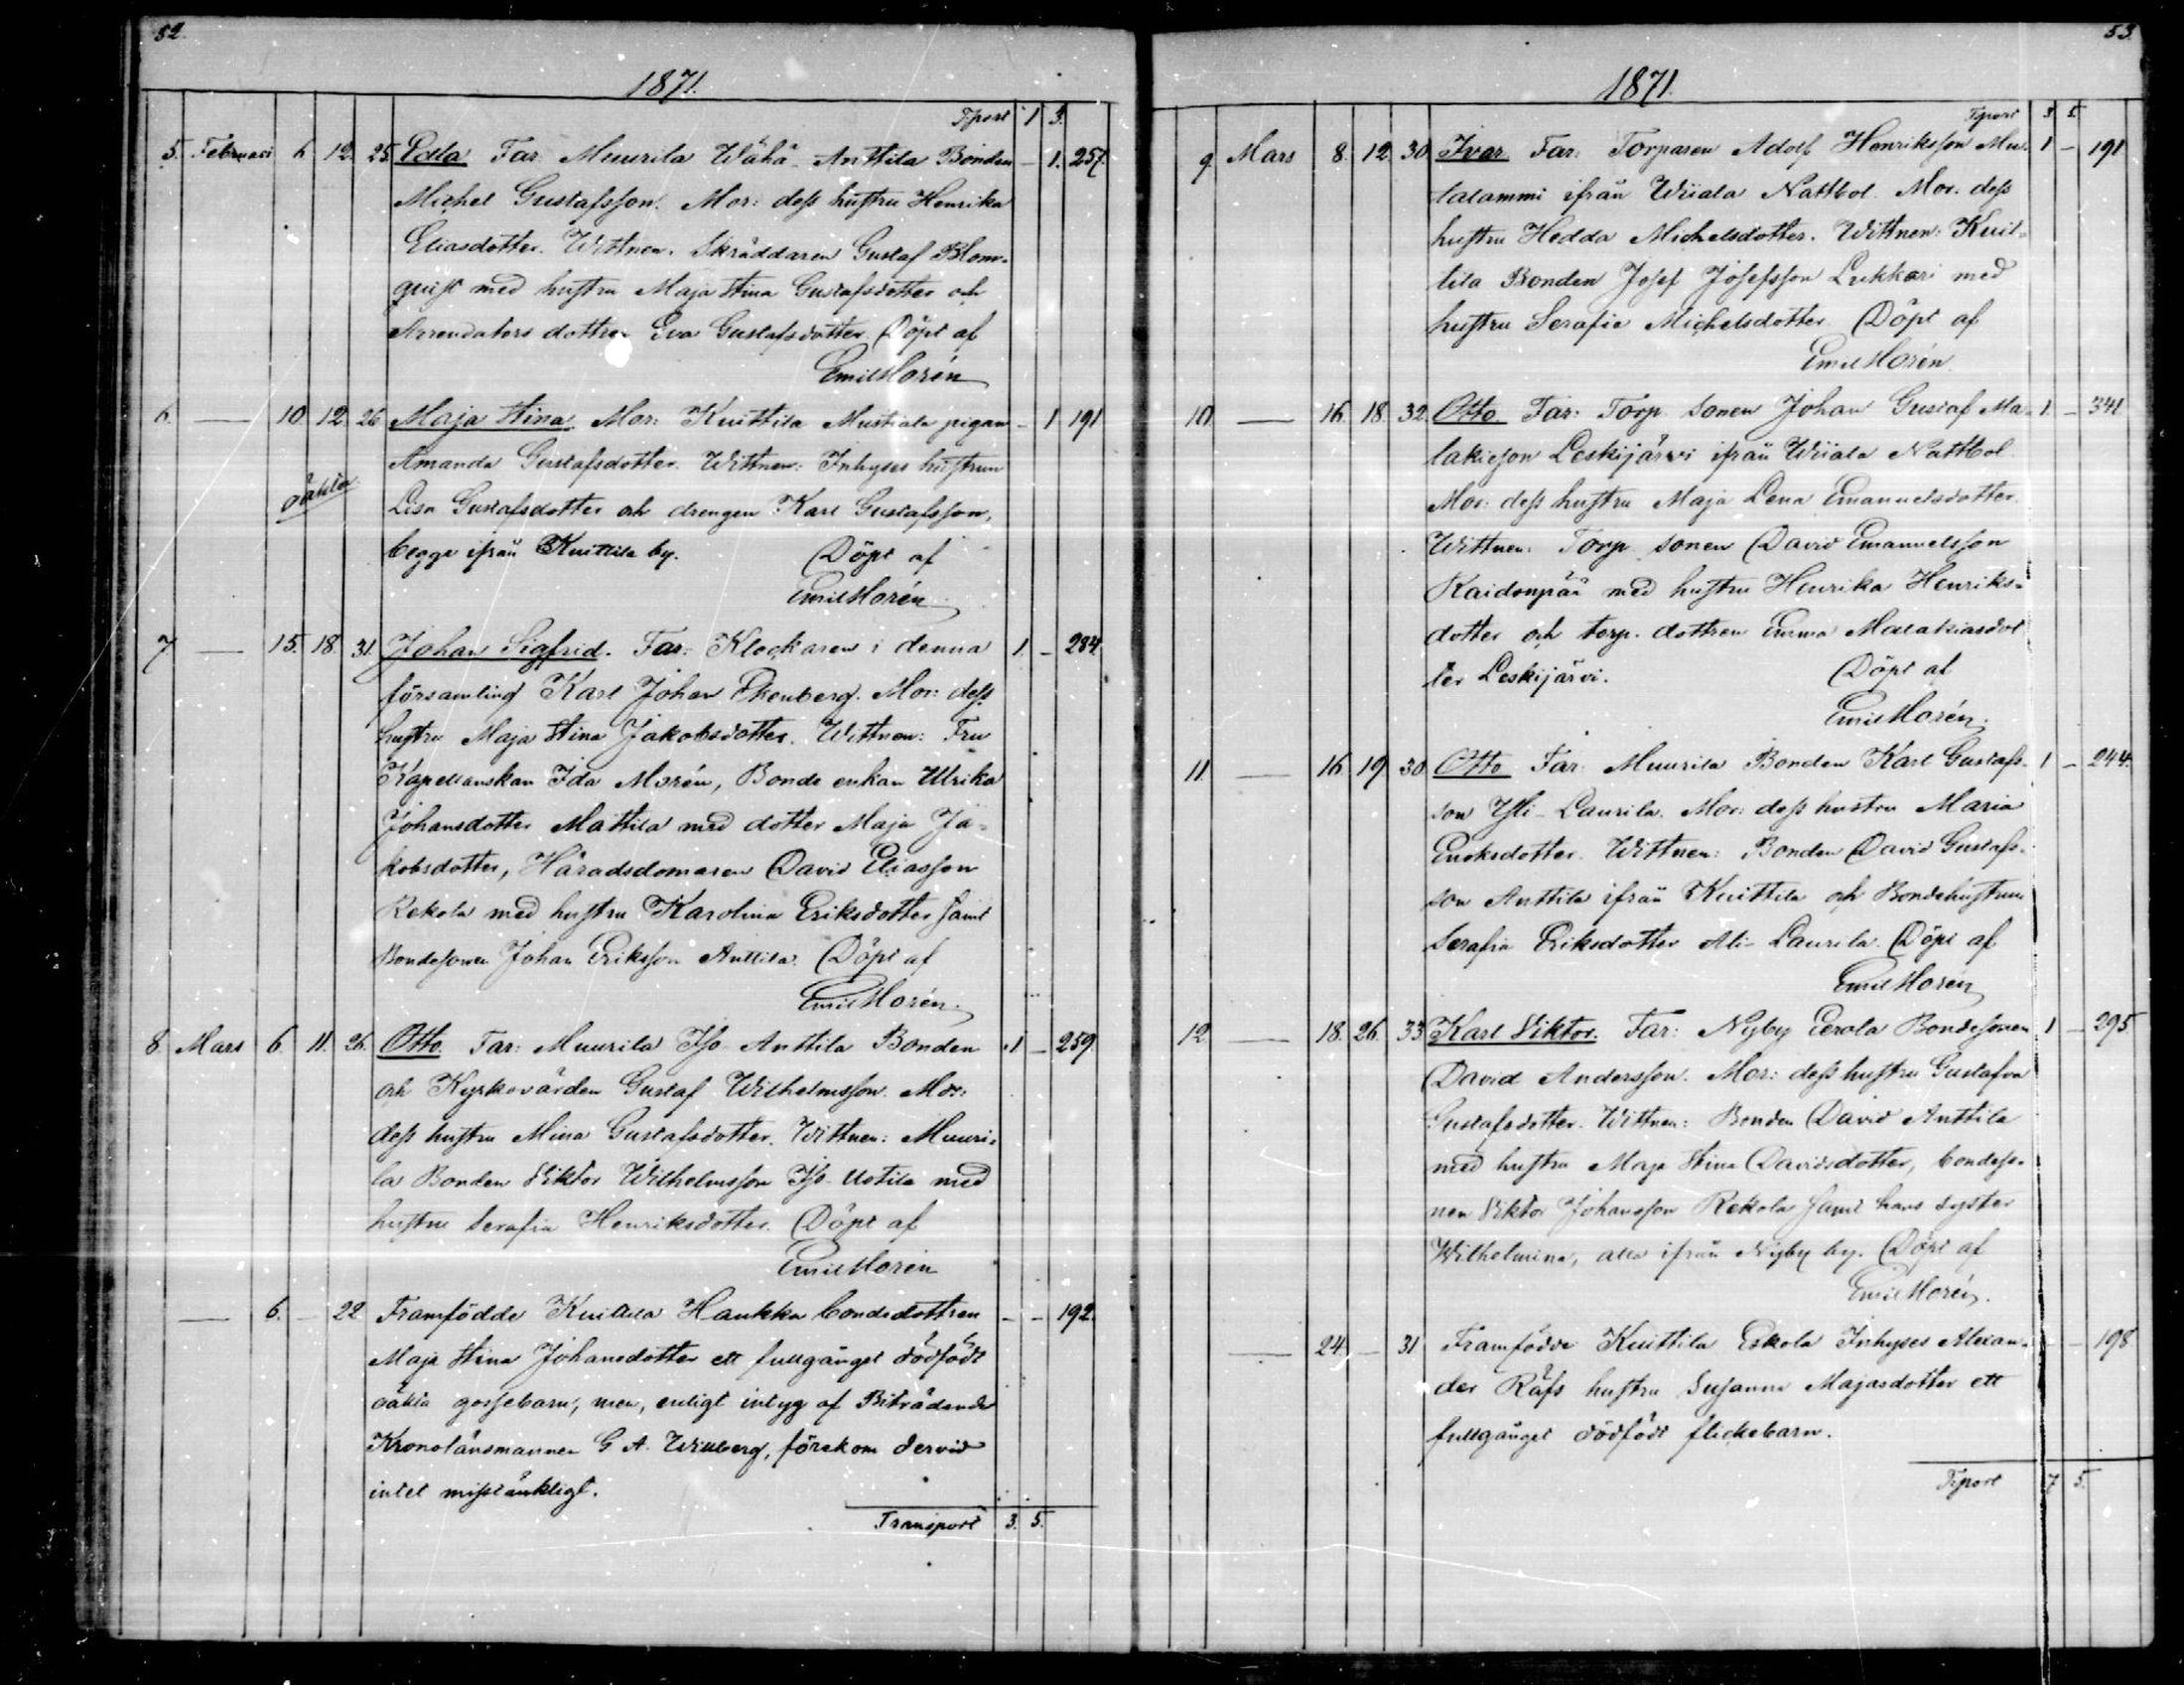 52.
1871.
Tport 1 3.
5. Februari 6 12. 25. Edla Far Muurila Wähä-Anttila Bonden - 1. 257.
Michel Gustafsson. Mor: dess hustru Henrika
Eliasdotter. Wittnen. Skräddaren Gustaf Blom-
quist med hustru Maja Stina Gustafsdotter och
Arrendators dottren Eva Gustafsdotter. Döpt af
Emil Morén
6. — 10 12. 26 Maja Stina. Mor: Kuittila Mustiala pigan - 1 191
Amanda Gustafsdotter. Wittnen: Inhyses hustrun
oäkta
Lisa Gustafsdotter och drengen Karl Gustafsson,
begge ifrån Kuittila by. Döpt af
Emil Morén
7 — 15. 18. 31. Johan Sigfrid. Far: Klockaren i denna 1. - 284.
församling Karl Johan Ekenberg. Mor: dess
hustru Maja Stina Jakobsdotter. Wittnen: Fru
Kapellanskan Ida Morén, Bonde enkan Ulrika
Johansdotter Mattila med dotter Maja Ja-
kobsdotter, Häradsdomaren David Eliasson
Rekola med hustru Karolina Eriksdotter samt
Bondesonen Johan Eriksson Anttila. Döpt af
Emil Morén.
8. Mars 6. 11. 26. Otto. Far: Muurila Iso-Anttila Bonden 1 - 259.
och Kyrkovärden Gustaf Wilhelmsson. Mor:
dess hustru Mina Gustafsdotter. Wittnen: Muuri-
la Bonden Viktor Wilhelmsson Iso-Uotila med
hustru Serafia Henriksdotter. Döpt af
Emil Morén
— 6. - 22 Framfödde Kuittila Haukka bondedottren - - 192.
Maja Stina Johansdotter ett fullgånget dödfödt
oäkta gossebarn, men, enligt intyg af Biträdande
Kronolänsmannen G A. Winberg, förekom dervid
intet misstänkligt.
Transport 3. 5.
53.
1871.
Tport 3 5
9. Mars 8. 12. 30. Ivar. Far: Torparen Adolf Henriksson Mus- 1 - 191
talammi ifrån Wiiala Nattbol. Mor. dess
hustru Hedda Michelsdotter. Wittnen: Kuit-
tila Bonden Josef Josefsson Lukkari med
hustru Serafia Michelsdotter. Döpt af
Emil Morén.
10 — 16. 18. 32. Otto. Far: Torp. sonen Johan Gustaf Ma- 1. - 341
lakieson Leskijärvi ifrån Wiiala Nattbol.
Mor: dess hustru Maja Lena Emanuelsdotter.
Wittnen: Torp. sonen David Emanuelsson
Kaidonpää med hustru Henrika Henriks-
dotter och torp. dottren Emma Malakiasdot
ter Leskijärvi. Döpt af
Emil Morén.
11 — 16 19 30 Otto Far: Muurila Bonden Karl Gustafs- 1 - 244.
son Yli-Laurila. Mor: dess hustru Maria
Enoksdotter. Wittnen: Bonden David Gustafs-
son Anttila ifrån Kuittila och Bondehustrun
Serafia Eriksdotter Ali-Laurila. Döpt af
Emil Morén
12. — 18. 26. 33 Karl Viktor. Far: Nyby Eerola Bondesonen 1 - 295
David Andersson. Mor: dess hustru Gustafva
Gustafsdotter. Wittnen: Bonden David Anttila
med hustru Maja Stina Davidsdotter, bondeso-
nen Viktor Johansson Rekola samt hans syster
Wilhelmina, alla ifrån Nyby by. Döpt af
Emil Morén.
— 24. — 31 Framfödde Kuittila Eskola Inhyses Alexan- - - 198
der Räfs hustru Susanna Majasdotter ett
fullgånget dödfödt flickebarn.
Tport 7 5.